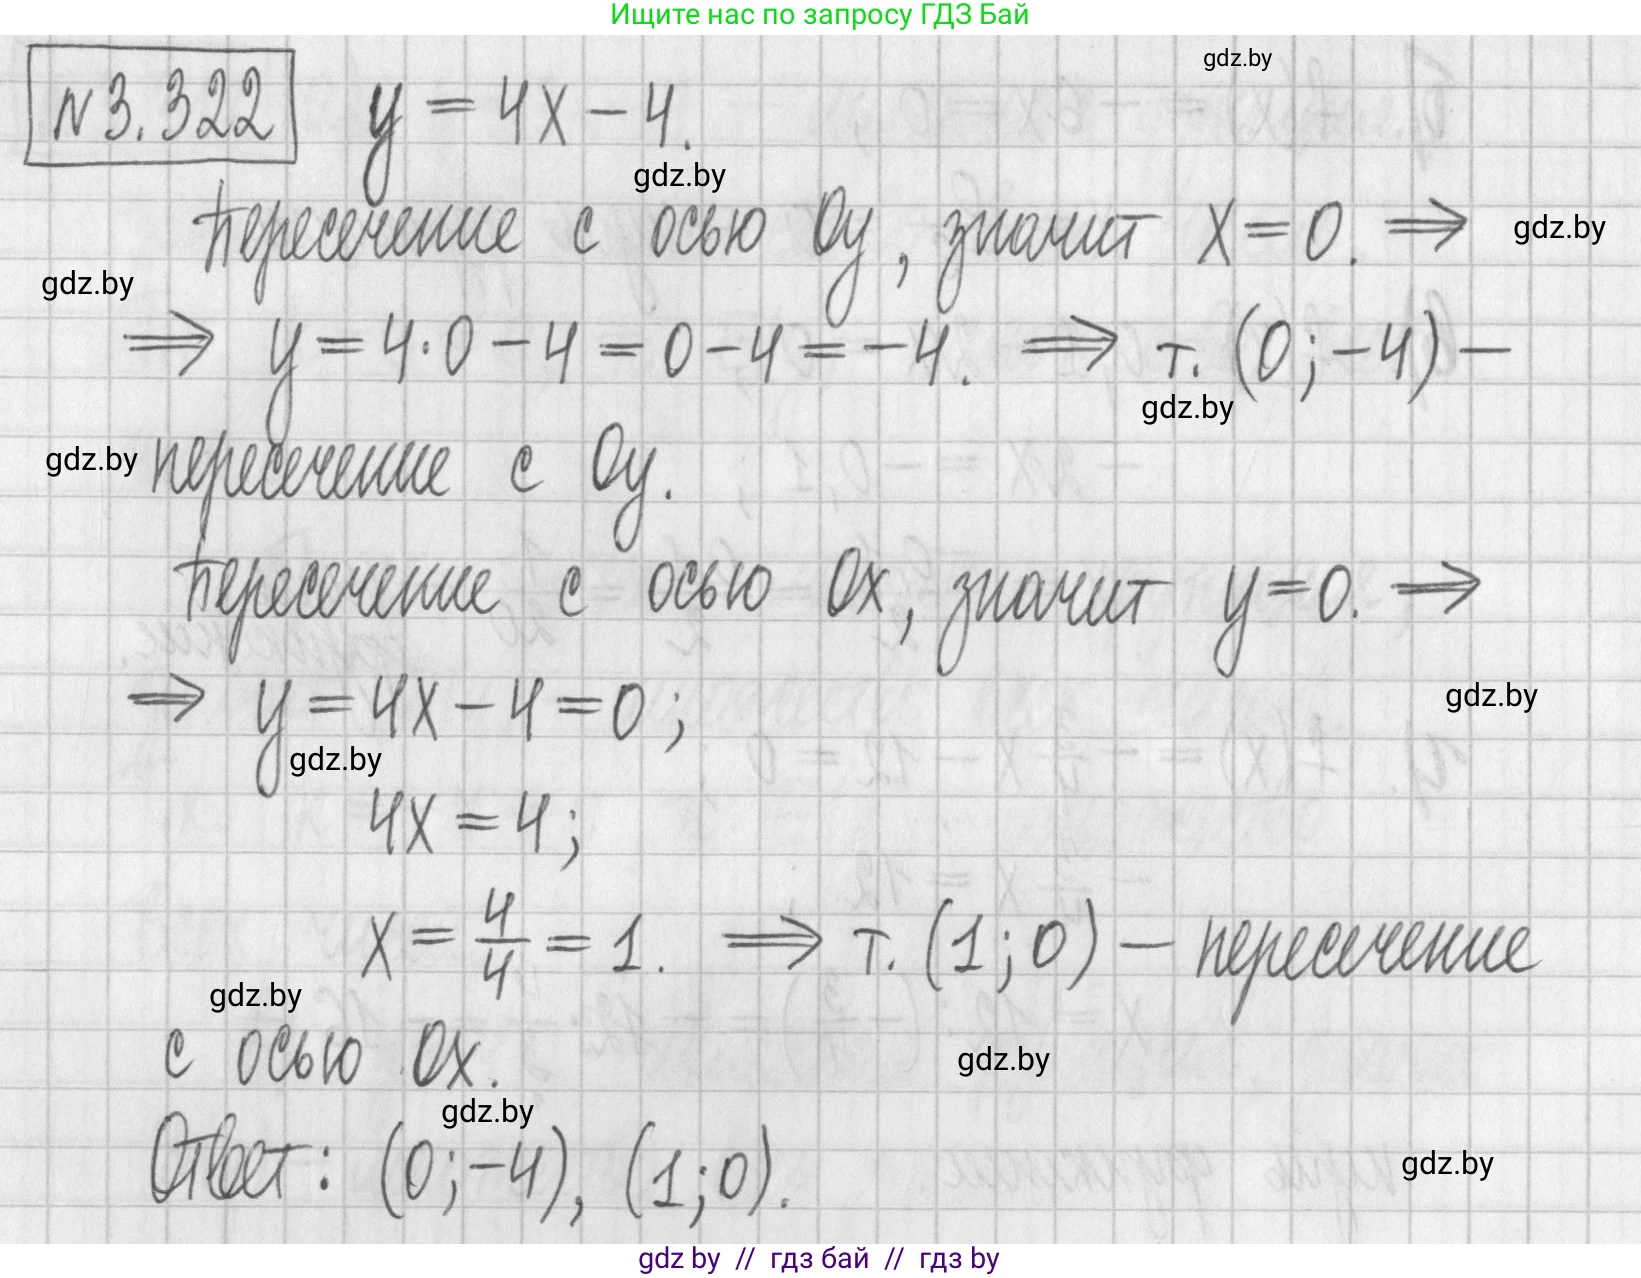 Ищите нас по запросу ГДЗ Бай
gdz.by
N3.322 y = 4x − 4.
gdz.by
Пересечение с осью Oy, значит x = 0. ⟹
gdz.by
gdz.by
⟹ y = 4·0 − 4 = 0 − 4 = −4. ⟹ т. (0; −4) −
gdz.by
gdz.by
пересечение с Oy.
Пересечение с осью Ox, значит y = 0. ⟹
⟹ y = 4x − 4 = 0;
gdz.by
gdz.by
4x = 4;
x = 4/4 = 1. ⟹ т. (1; 0) − пересечение
gdz.by
с осью Ox.
gdz.by
gdz.by
Ответ: (0; −4), (1; 0).
gdz.by
gdz by // гдз бай // гдз by